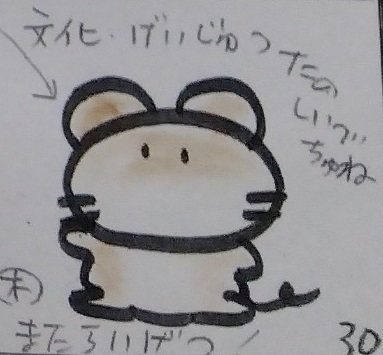 文化・げいじゅつ
たの
しいで
ちゅね
(木)
またらいげつ!
30